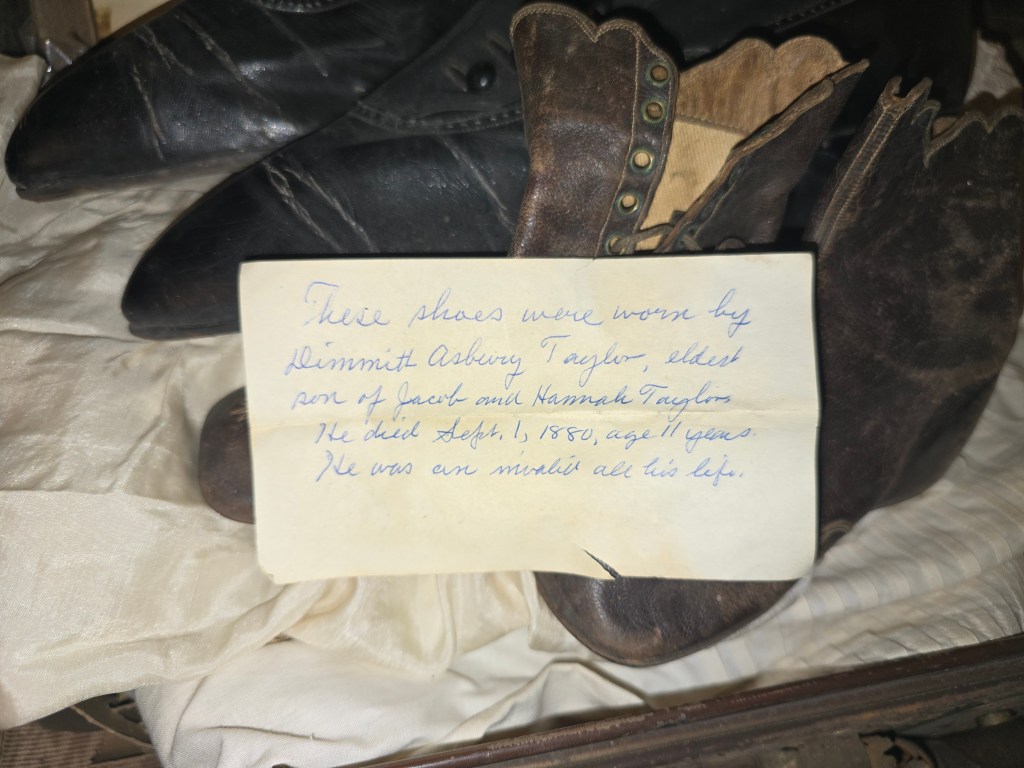 These shoes were worn by
Dimmitt Asbury Taylor, eldest
son of Jacob and Hannah Taylor
He died Sept. 1, 1880, age 11 years.
He was an invalid all his life.